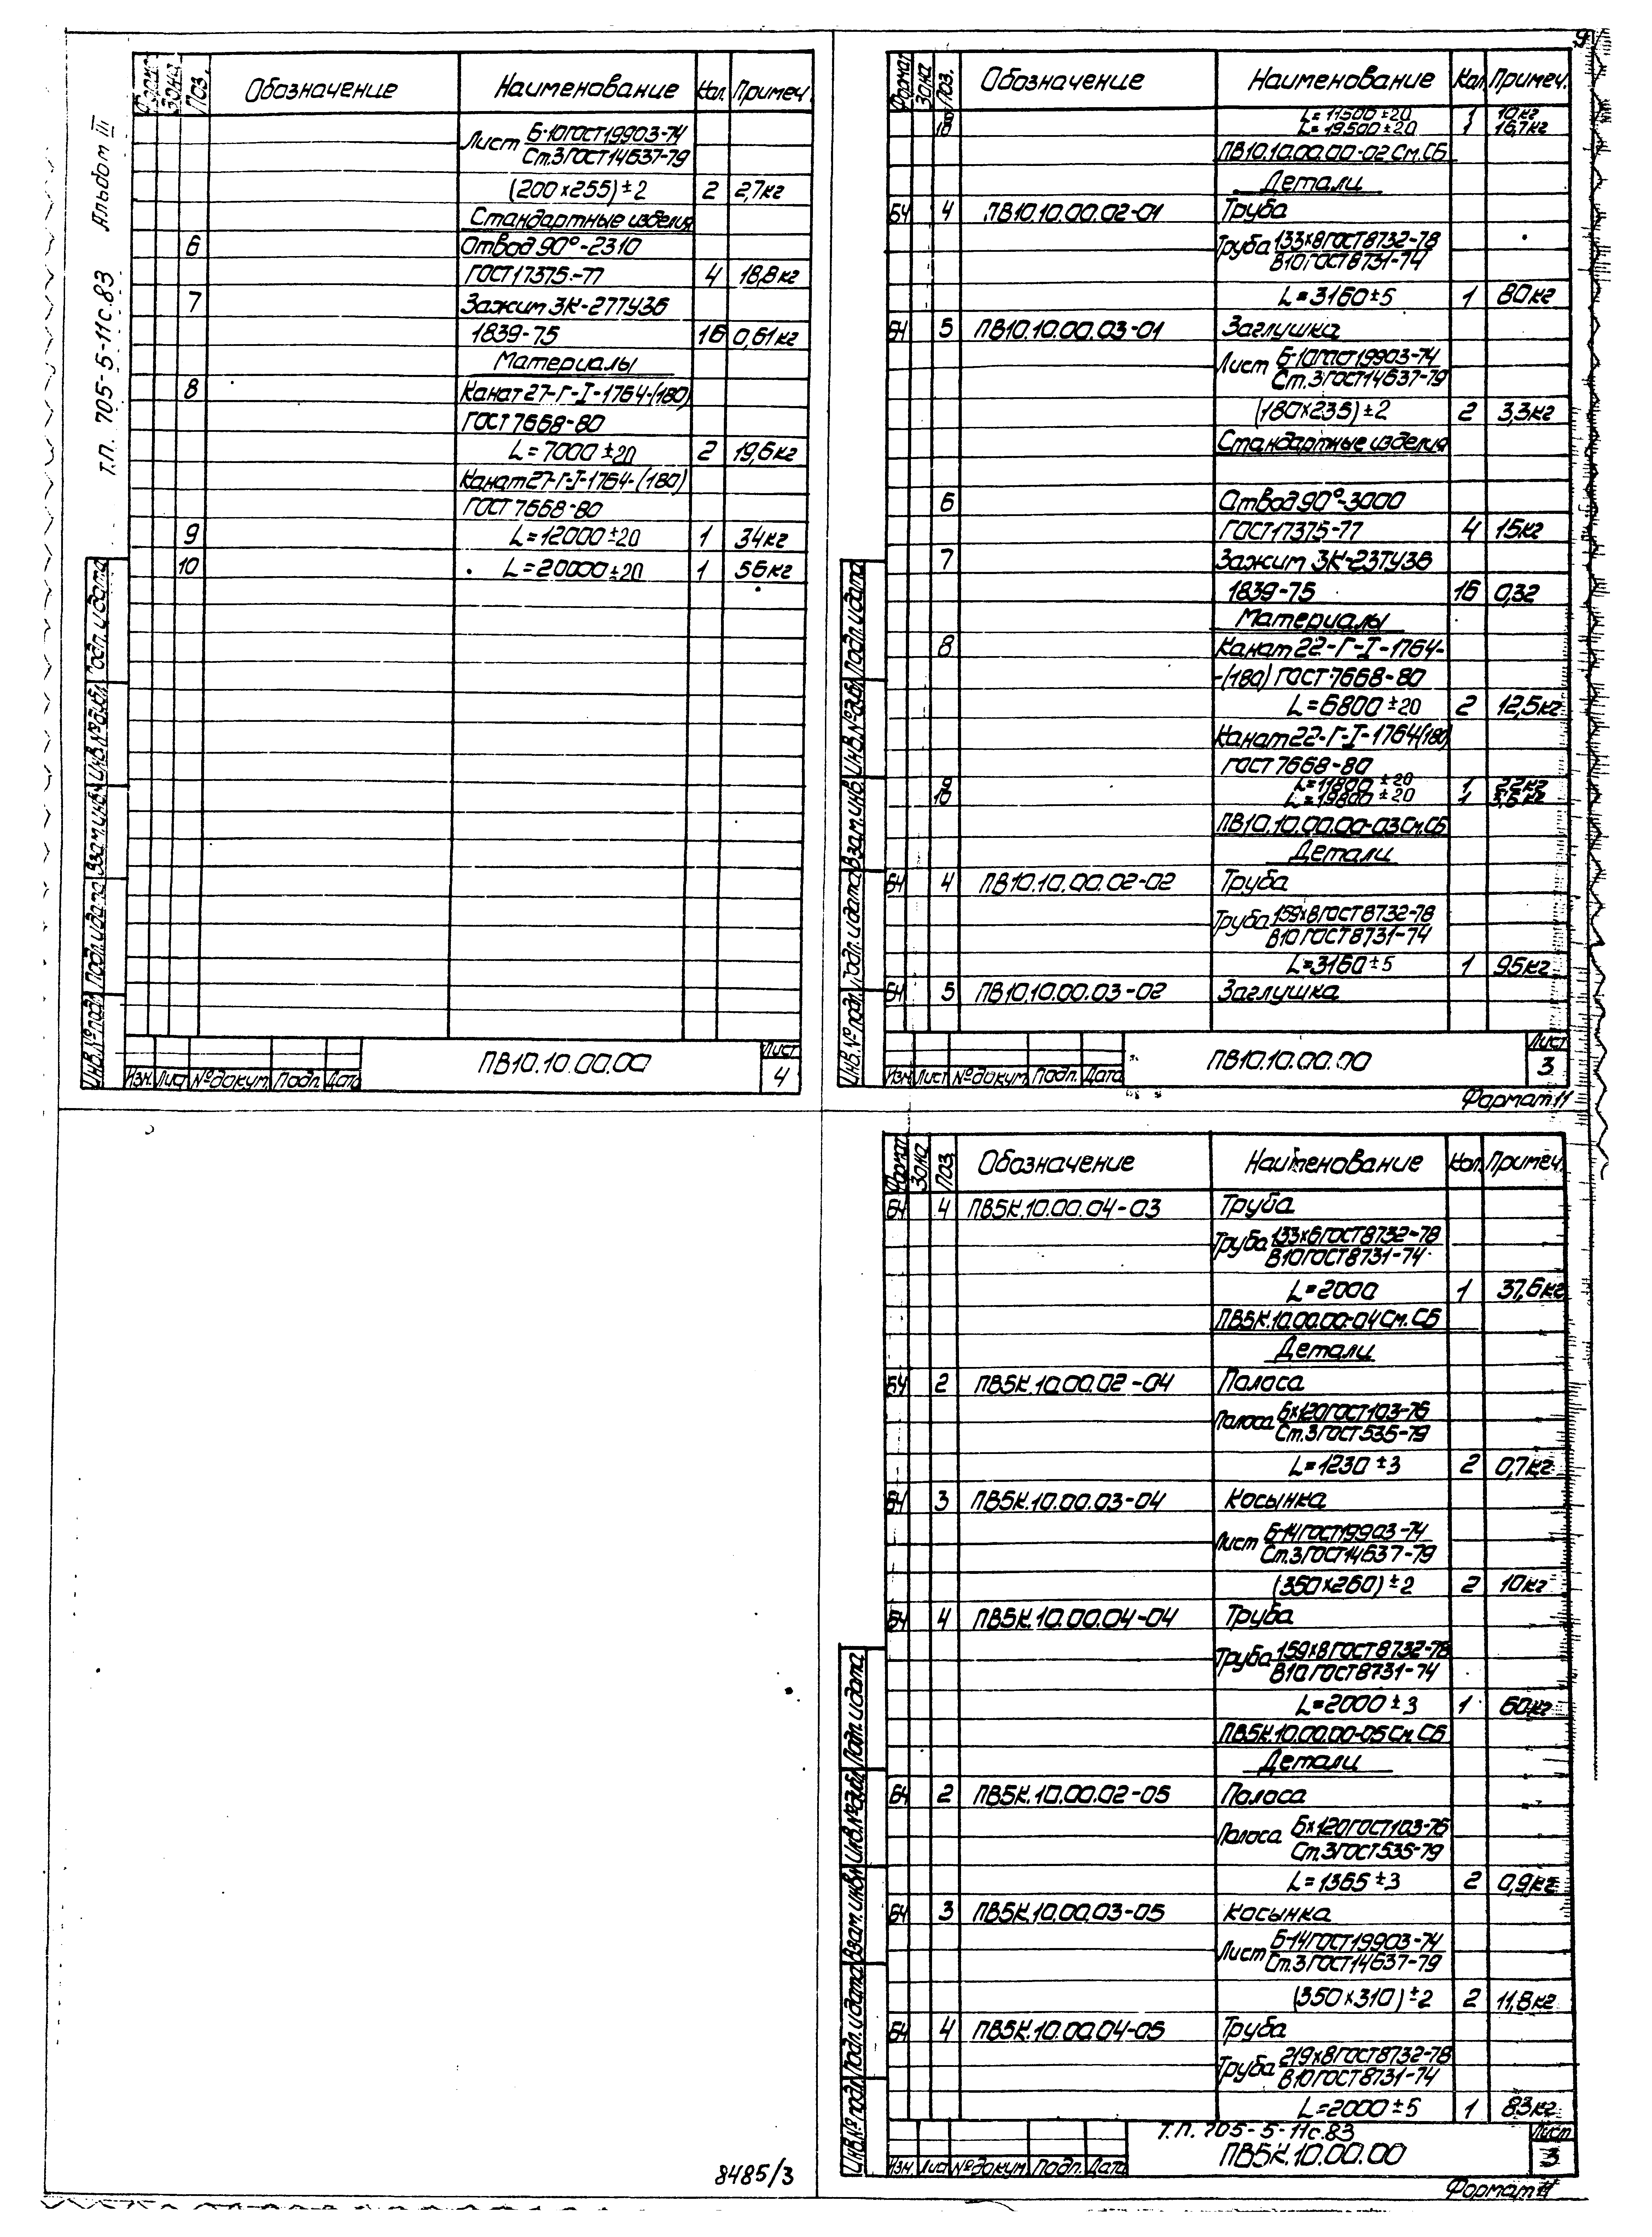 9
Т.П. 705-5-11с.83 Альбом III
Формат Зона Поз. Обозначение Наименование Кол. Примеч.
Лист Б-10ГОСТ19903-74
Ст.3ГОСТ14637-79
(200×255)±2 2 2,7кг
Стандартные изделия
6 Отвод 90°-2310
ГОСТ17375-77 4 18,8кг
7 Зажим ЗК-27ТУ36
1839-75 16 0,61кг
Материалы
8 Канат 27-Г-I-1764-(180)
ГОСТ 7668-80
L=7000±20 2 19,6кг
Канат 27-Г-I-1764-(180)
ГОСТ 7668-80
9 L=12000±20 1 34кг
10 L=20000±20 1 56кг
Инв.№подл. Подп. и дата Взам.инв.№ Инв.№дубл. Подп. и дата
Изм. Лист №докум. Подп. Дата
ПВ10.10.00.00
Лист
4
Формат Зона Поз. Обозначение Наименование Кол. Примеч.
9 L=11500±20 1 10кг
10 L=19500±20 1 16,7кг
ПВ10.10.00.00-02 См.СБ
Детали
БЧ 4 ПВ10.10.00.02-01 Труба
Труба 133×8ГОСТ8732-78
В10ГОСТ8731-74
L=3160±5 1 80кг
БЧ 5 ПВ10.10.00.03-01 Заглушка
Лист Б-10ГОСТ19903-74
Ст.3ГОСТ14637-79
(180×235)±2 2 3,3кг
Стандартные изделия
6 Отвод 90°-3000
ГОСТ17375-77 4 15кг
7 Зажим ЗК-23ТУ36
1839-75 16 0,32
Материалы
8 Канат 22-Г-I-1764-
-(180) ГОСТ 7668-80
L=6800±20 2 12,5кг
Канат 22-Г-I-1764(180)
ГОСТ 7668-80
9 L=11800±20 1 22кг
10 L=19800±20 1
ПВ10.10.00.00-03 См.СБ
Детали
БЧ 4 ПВ10.10.00.02-02 Труба
Труба 159×8ГОСТ8732-78
В10ГОСТ8731-74
L=3160±5 1 95кг
БЧ 5 ПВ10.10.00.03-02 Заглушка
Инв.№подл. Подп. и дата Взам.инв.№ Инв.№дубл. Подп. и дата
Изм. Лист №докум. Подп. Дата
ПВ10.10.00.00
Лист
3
Формат 11
Формат Зона Поз. Обозначение Наименование Кол. Примеч.
БЧ 4 ПВ5К.10.00.04-03 Труба
Труба 133×6ГОСТ8732-78
В10ГОСТ8731-74
L=2000 1 37,6кг
ПВ5К.10.00.00-04 См.СБ
Детали
БЧ 2 ПВ5К.10.00.02-04 Полоса
Полоса 6×120ГОСТ103-76
Ст.3ГОСТ535-79
L=1230±3 2 0,7кг
БЧ 3 ПВ5К.10.00.03-04 Косынка
Лист Б-14ГОСТ19903-74
Ст.3ГОСТ14637-79
(350×260)±2 2 10кг
БЧ 4 ПВ5К.10.00.04-04 Труба
Труба 159×8ГОСТ8732-78
В10ГОСТ8731-74
L=2000±3 1 60кг
ПВ5К.10.00.00-05 См.СБ
Детали
БЧ 2 ПВ5К.10.00.02-05 Полоса
Полоса 6×120ГОСТ103-76
Ст.3ГОСТ535-79
L=1365±3 2 0,9кг
БЧ 3 ПВ5К.10.00.03-05 Косынка
Лист Б-14ГОСТ19903-74
Ст.3ГОСТ14637-79
(350×310)±2 2 11,8кг
БЧ 4 ПВ5К.10.00.04-05 Труба
Труба 219×8ГОСТ8732-78
В10ГОСТ8731-74
L=2000±5 1 83кг
Инв.№подл. Подп. и дата Взам.инв.№ Инв.№дубл. Подп. и дата
Изм. Лист №докум. Подп. Дата
Т.П. 705-5-11с.83
ПВ5К.10.00.00
Лист
3
Формат 11
8485/3